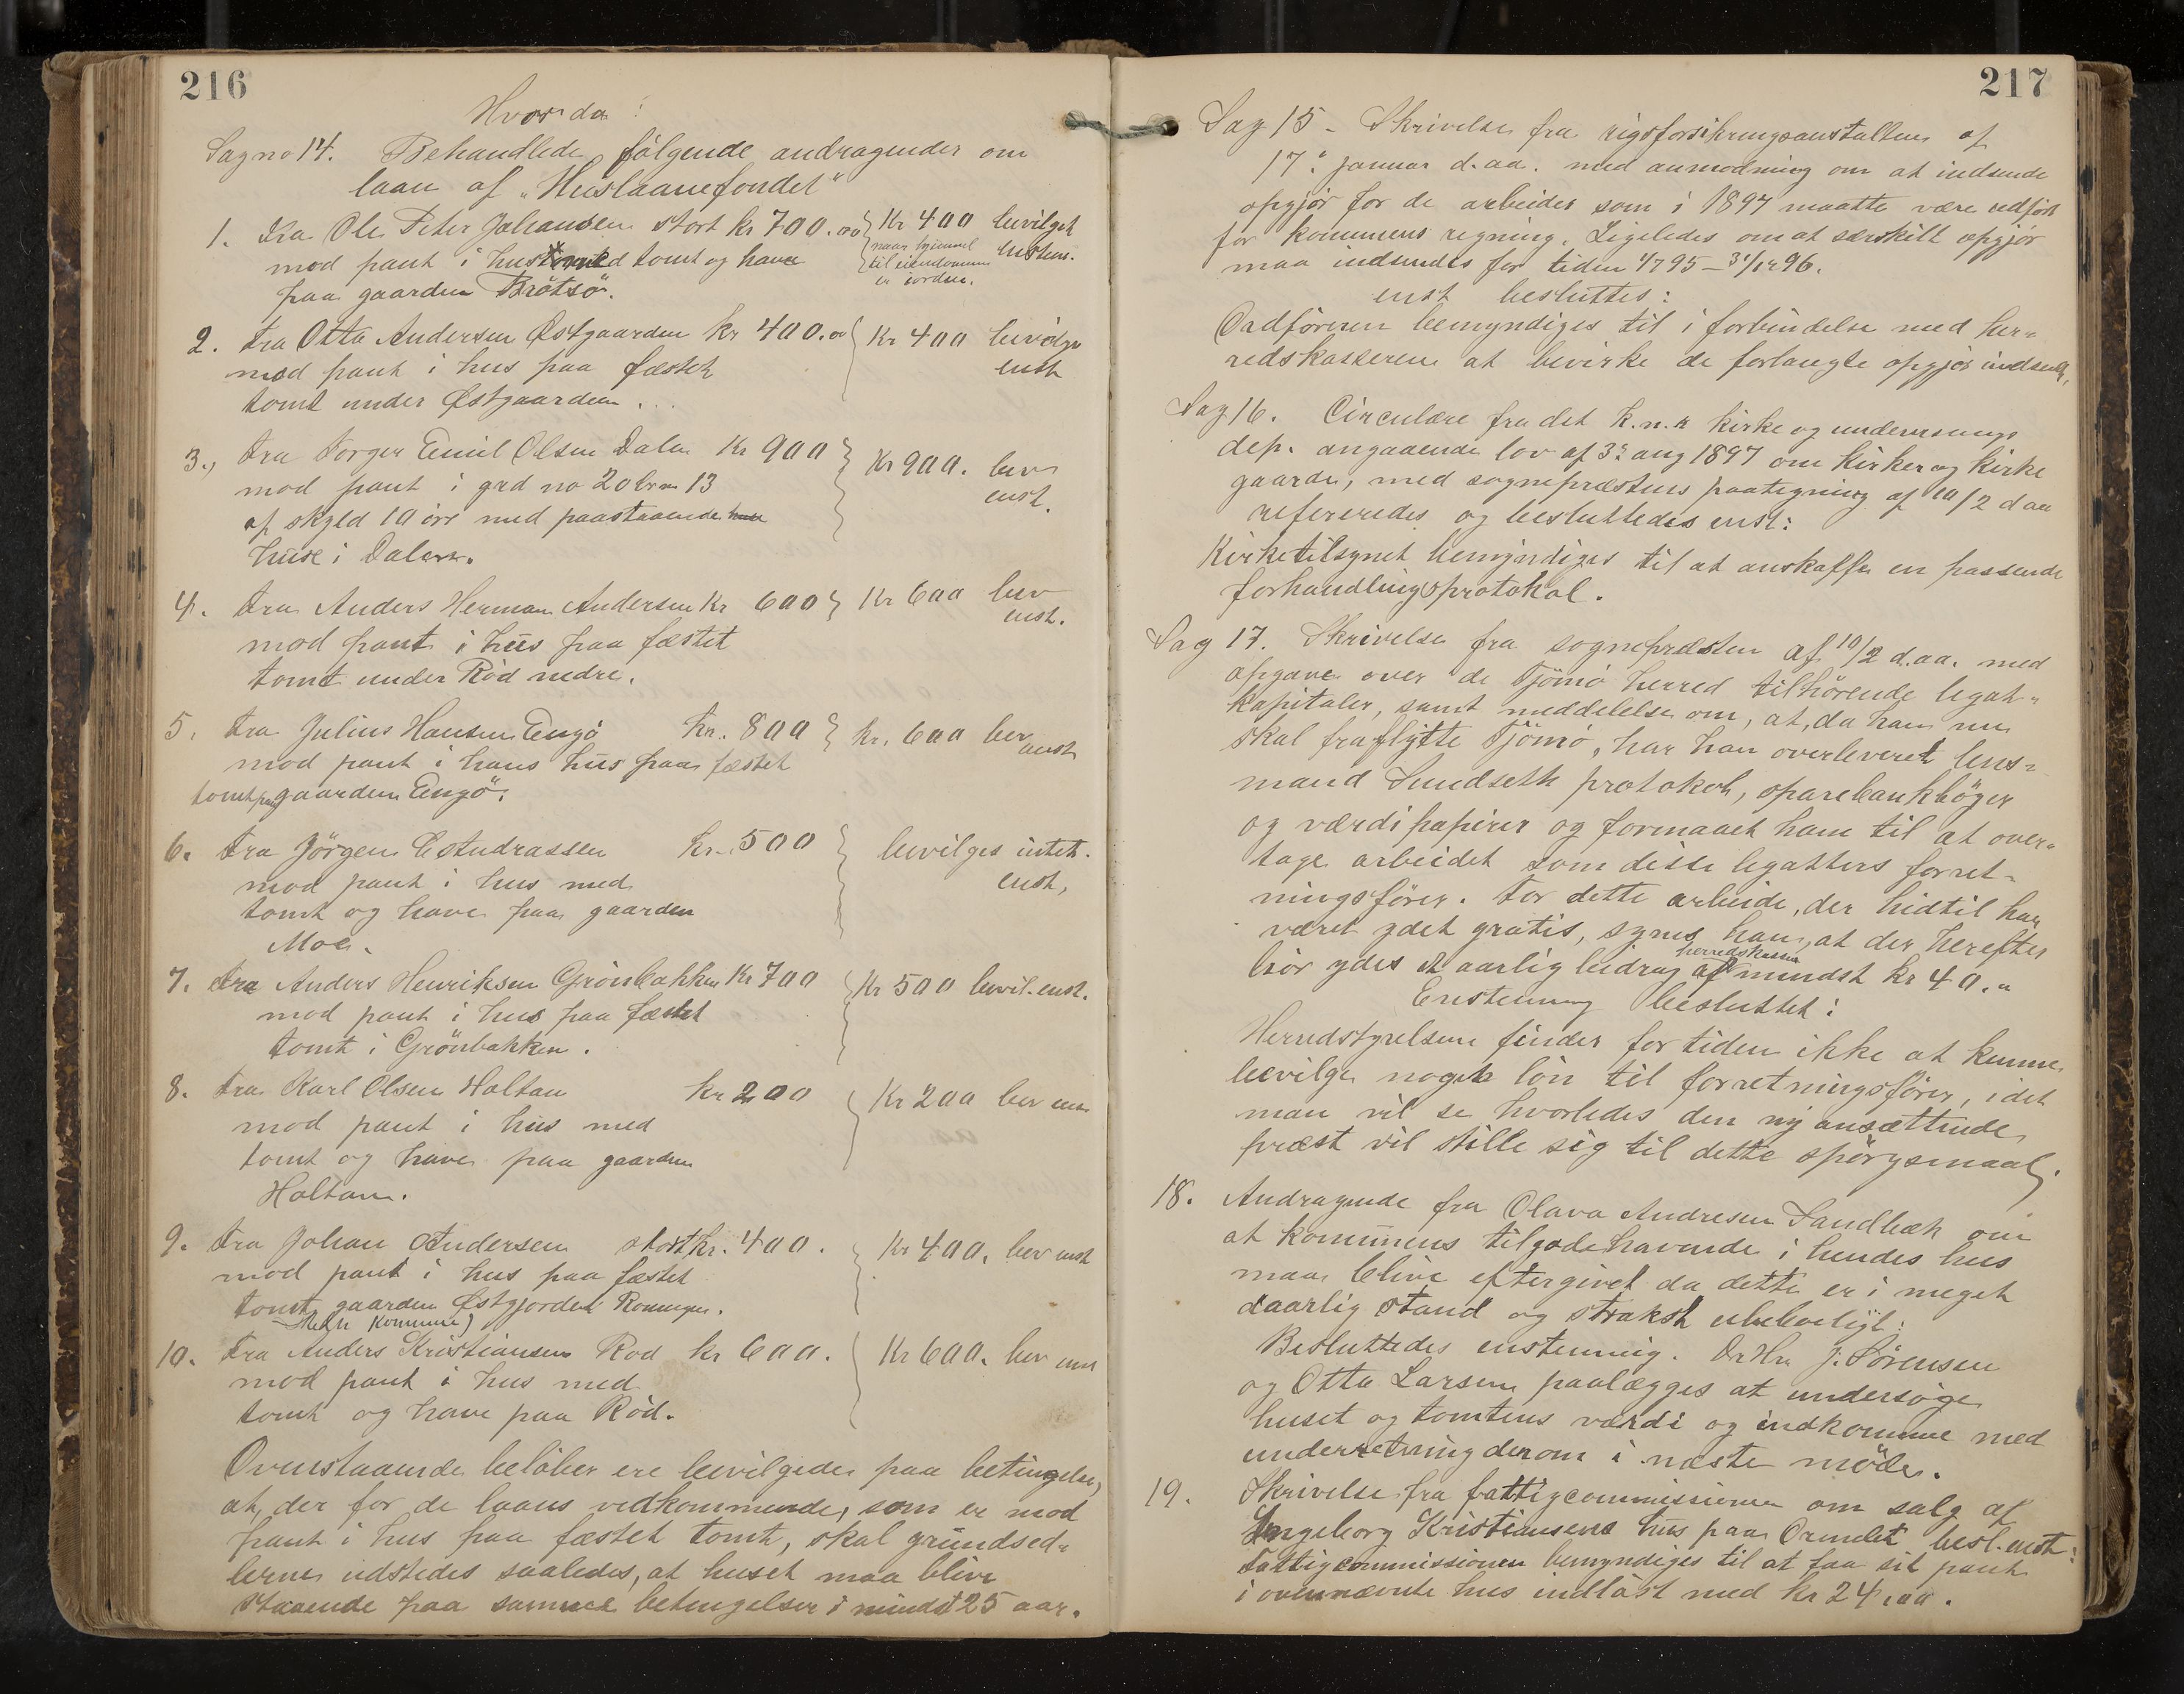 216
Hvorda:
Sag no 14. Behandlede følgende andragender om
laan af „Huslaanefondet"
1. Fra Ole Peter Johansen stort kr 700.00 Kr 400 bevilget
mod pant i hus med tomt og have naar hjemmel enstem.
til eiendommen
paa gaarden Brötsö. er iorden.
2. Fra Otto Andersen Østgaarden kr 400.00 Kr 400 bevilges
mod pant i hus paa fæstet enst
tomt under Østgaarden...
3., Fra Torger Emil Olsen Dalen Kr 900 Kr 900. bev
mod pant i grd no 20 brno 13 enst.
af skyld 10 öre med paastaaende
huse i Dalen.
4. Fra Anders Herman Andersen Kr 600 Kr 600 bev
enst.
mod pant i hus paa fæstet
tomt under Röd nedre.
5. Fra Julius Hansen Engö kr. 800 kr. 600 bev
enst
mod pant i hans hus paa fæstet
tomt paa gaarden Engö.
6. Fra Jörgen E Andrassen kr. 500 bevilges intet.
mod pant i hus med enst,
tomt og have paa gaarden
Moe.
7. Fra Anders Henriksen Grönbakken Kr 700 Kr 500 bevil. enst.
mod pant i hus paa fæstet
tomt i Grönbakken.
8. Fra Karl Olsen Holtan kr 200 Kr 200 bev ens
mod pant i hus med
tomt og have paa gaarden
Holtan.
9. Fra Johan Andersen stort kr. 400. Kr 400. bev enst
mod pant i hus paa fæstet
tomt gaarden Østgjordet
Kommune)
10. Fra Anders Kristiansen Röd kr 600. Kr 600. bev ens
mod pant i hus med
tomt og have paa Röd.
Ovenstaaende belöber ere bevilgede paa betingelse,
at der for de laans vedkommende, som er mod
pant i hus paa fæstet tomt, skal grundsed-
lerne udstedes saaledes, at huset maa blive
staaende paa samme betingelser i mindst 25 aar.
217
Sag 15 - Skrivelse fra rigsforsikringsanstalten af
17. januar d.aa. med anmodning om at indsende
opgjør for de arbeider som i 1897 maatte være udført
for kommunens regning. Ligeledes om at særskilt opgjør
maa indsendes for tiden 1/7 95 – 31/12 96.
enst besluttes:
Ordföreren bemyndiges til i forbindelse med her-
redskassereren at bevirke de forlangte opgjør indsendt,
Sag 16. Circulære fra det k.n.r kirke og undervisnings
dep. angaaende lov af 3. aug 1897 om kirker og kirke
gaarde, med sognepræstens paategning af 10/2 d aa
refereredes og besluttedes enst:
Kirketilsynet bemyndiges til at anskaffe en passende
forhandlingsprotokol.
Sag 17. Skrivelse fra sognepræsten af 10/2 d.aa. med
opgave over de Tjömö herred tilhörende legat-
kapitaler, samt meddelelse om, at, da han nu
skal fraflytte Tjömö, har han overleveret lens-
mand Sundseth protokol, sparebankböger
og værdipapirer og formaaet ham til at over-
tage arbeidet som disse legatters forret-
ningsförer. For dette arbeide, der hidtil har
været ydet gratis, synes han, at der herefter
herredskassen
bör ydes et aarlig bidrag af mindst kr 40.
Enstemmig besluttet:
Herredstyrelsen finder for tiden ikke at kunne
bevilge noget lön til forretningsförer, idet
man vil se hvorledes den ny ansættende
præst vil stille sig til dette spörgsmaal.
18. Andragende fra Olava Andresen Sandbæk om
at kommunens tilgodehavende i hendes hus
maa blive eftergivet da dette er i meget
daarlig stand og strakst ubeboeligt:
Besluttedes enstemmig. Dr Hrr J. Sörensen
og Otto Larsen paalægges at undersöge
huset og tomtens værdi og indkomme med
underretning derom i næste möde.
19. Skrivelse fra fattigcommissionen om salg af
Ingeborg Kristiansens hus paa Ormelet besl. enst:
Fattigcommissionen bemyndiges til at faa sit pant
i ovennævnte hus indlöst med kr 24,00.